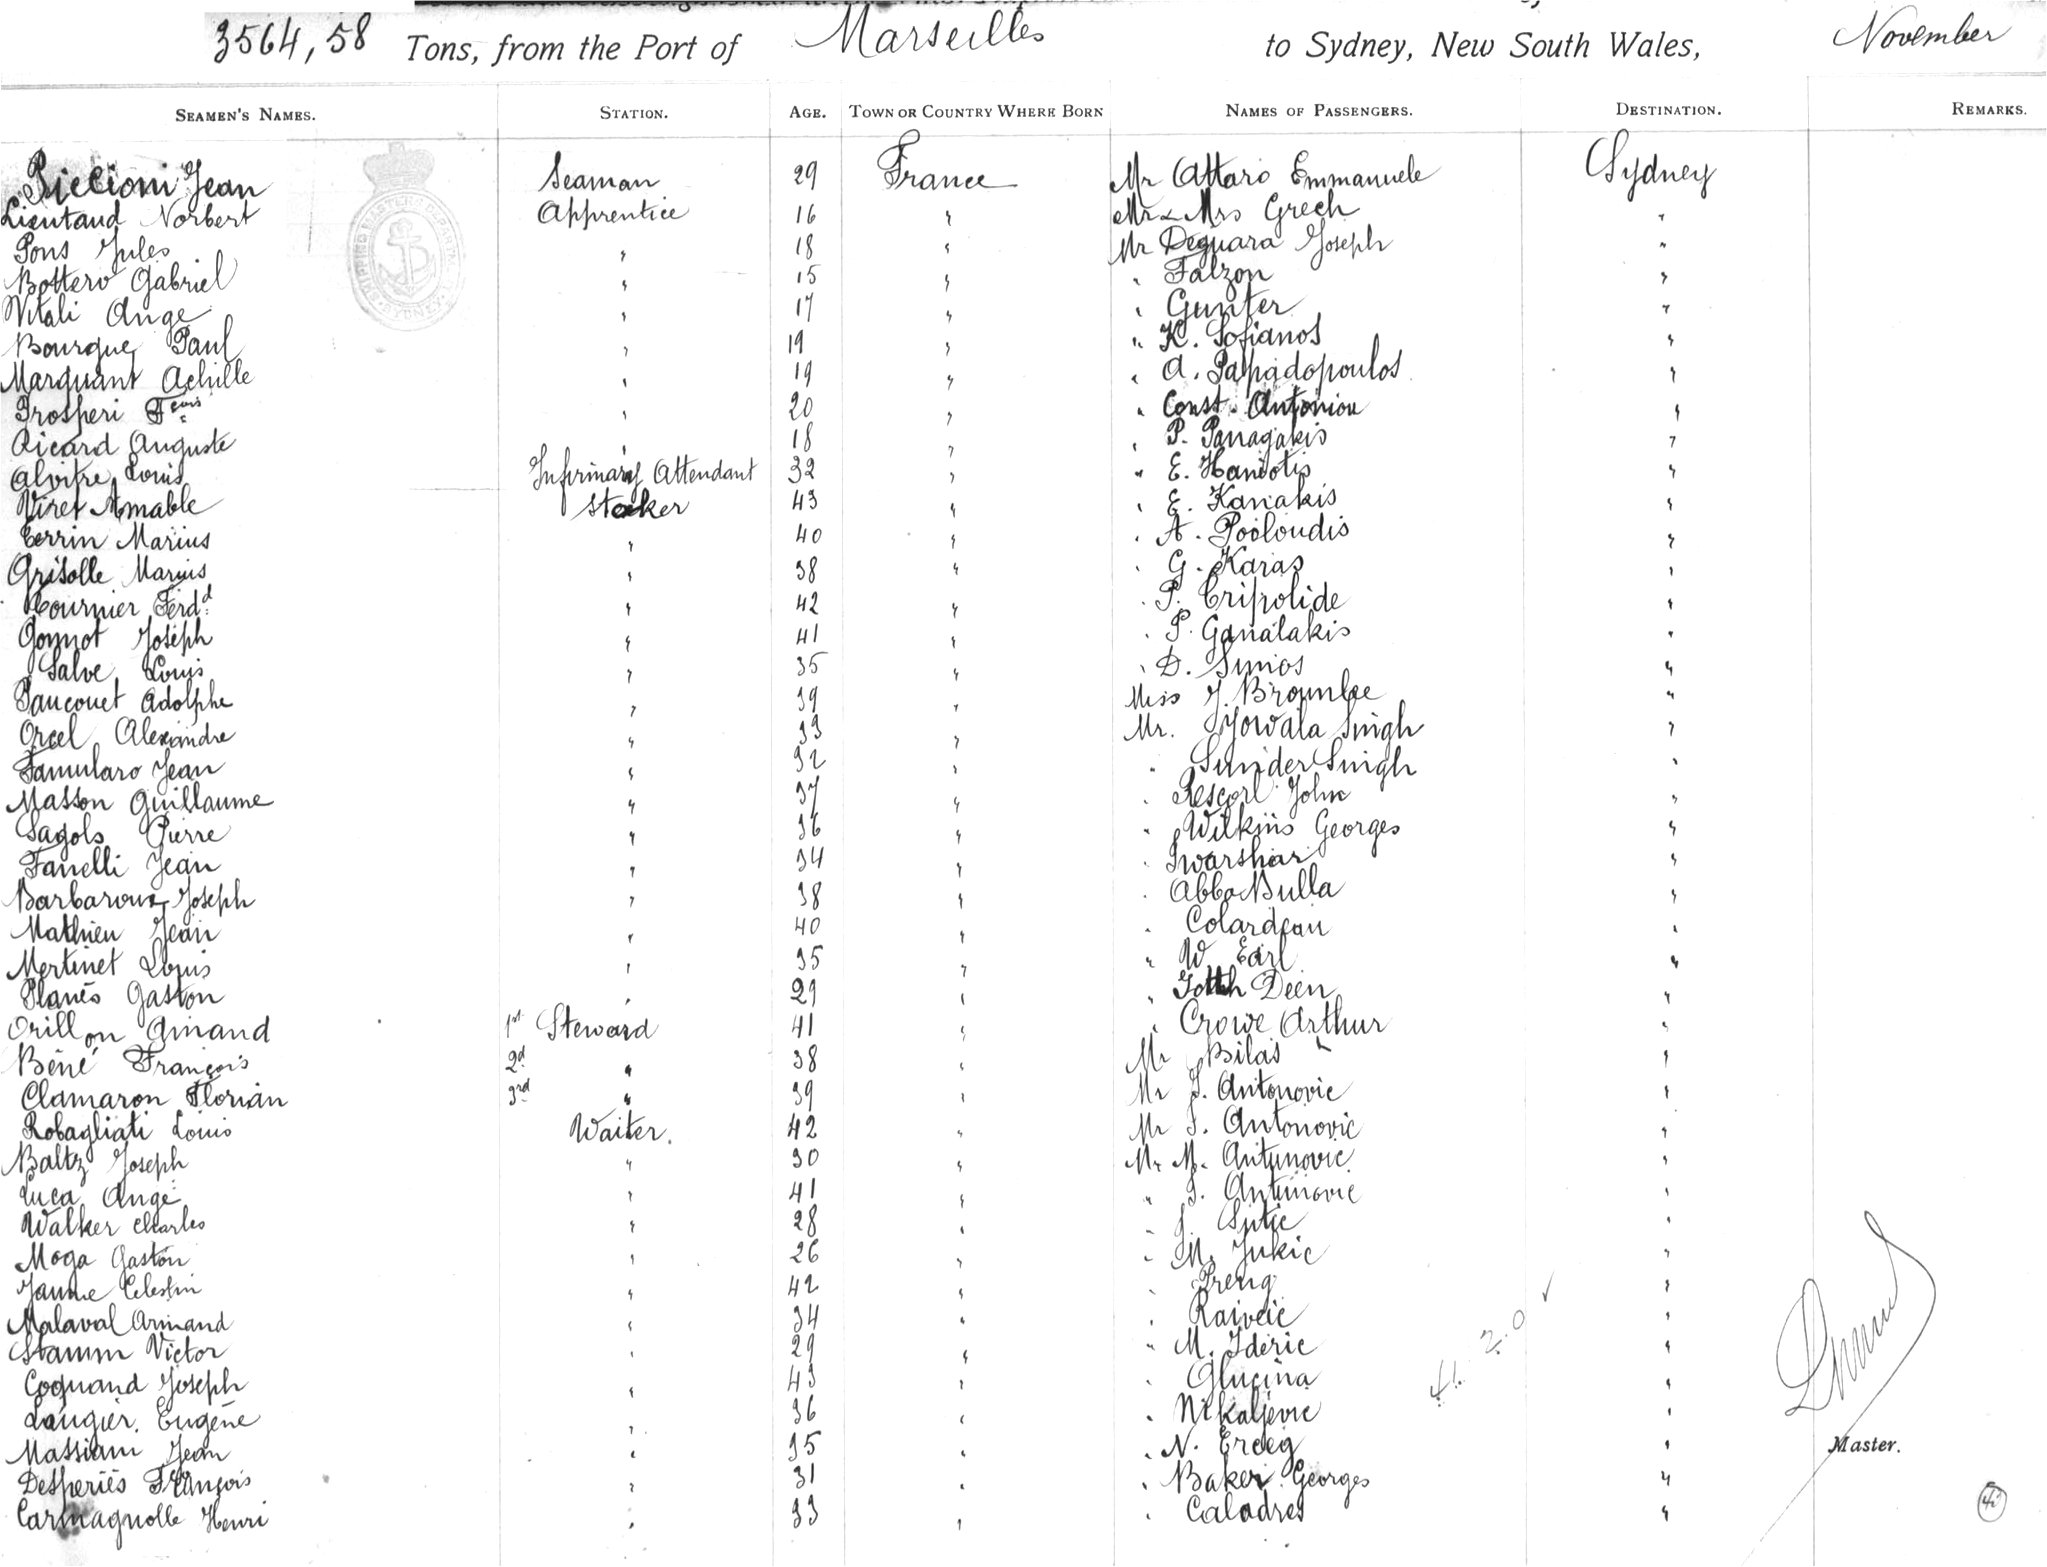 3564,58 Tons, from the Port of Marseilles to Sydney, New South Wales, November
SEAMEN'S NAMES. STATION. AGE. TOWN OR COUNTRY WHERE BORN NAMES OF PASSENGERS. DESTINATION. REMARKS.
Piccioni Jean Seaman 29 France Mr Attaro Emmanuele Sydney
Lieutaud Norbert Apprentice 16 " Mr & Mrs Grech "
Pons Jules " 18 " Mr Deguara Joseph "
Bottero Gabriel " 15 " " Falzon "
Vitali Ange " 17 " " Gunter "
Bourgue Paul " 19 " " K. Sofianos "
Marquant Achille " 19 " " A. Papadopoulos "
Prosperi Fçois " 20 " " Const. Antoniou "
Ricard Auguste " 18 " " P. Panagakis "
Alvitre Louis Infirmary Attendant 32 " " E. Haniotis "
Viret Amable Stoker 43 " " E. Kanakis "
Terrin Marius " 40 " " A. Pooloudis "
Grisolle Marius " 38 " " G. Karas "
Tournier Ferdd " 42 " " P. Tripolide "
Gonnot Joseph " 41 " " P. Ganalakis "
Salve Louis " 35 " " D. Simos "
Paucouet Adolphe " 39 " Miss J. Bromlee "
Orcel Alexandre " 33 " Mr. Jowala Singh "
Famularo Jean " 32 " " Sunder Singh "
Masson Guillaume " 37 " " Rescorl John "
Sagols Pierre " 36 " " Wilkins Georges "
Fanelli Jean " 34 " " Iwarshar "
Barbaroux Joseph " 38 " " Abba Bulla "
Mathieu Jean " 40 " " Colardeau "
Mertinet Louis " 35 " " W Earl "
Planès Gaston " 29 " " Deen "
Orillon Amand 1st Steward 41 " " Crowe Arthur "
Béné François 2d " 38 " Mr Bilas "
Clamaron Florian 3rd " 39 " Mr J. Antonovic "
Robagliati Louis Waiter. 42 " Mr J. Antonovic "
Baltz Joseph " 30 " Mr M. Antunovic "
Luca Ange " 41 " " J. Antunovic "
Walker Charles " 28 " " J. Sutic "
Moga Gaston " 26 " " M. Jukic "
Jaume Celestin " 42 " " Preng "
Malaval Armand " 34 " " Raiveic "
Stamm Victor " 29 " " M. Ideric "
Coquand Joseph " 43 " " Glucina "
Laugier. Eugène " 36 " " Nikaljevic "
Massiani Jean " 35 " " N. Erceg "
Master.
Desperiès François " 31 " " Baker Georges "
Carmagnolle Henri " 33 " " Caladres "